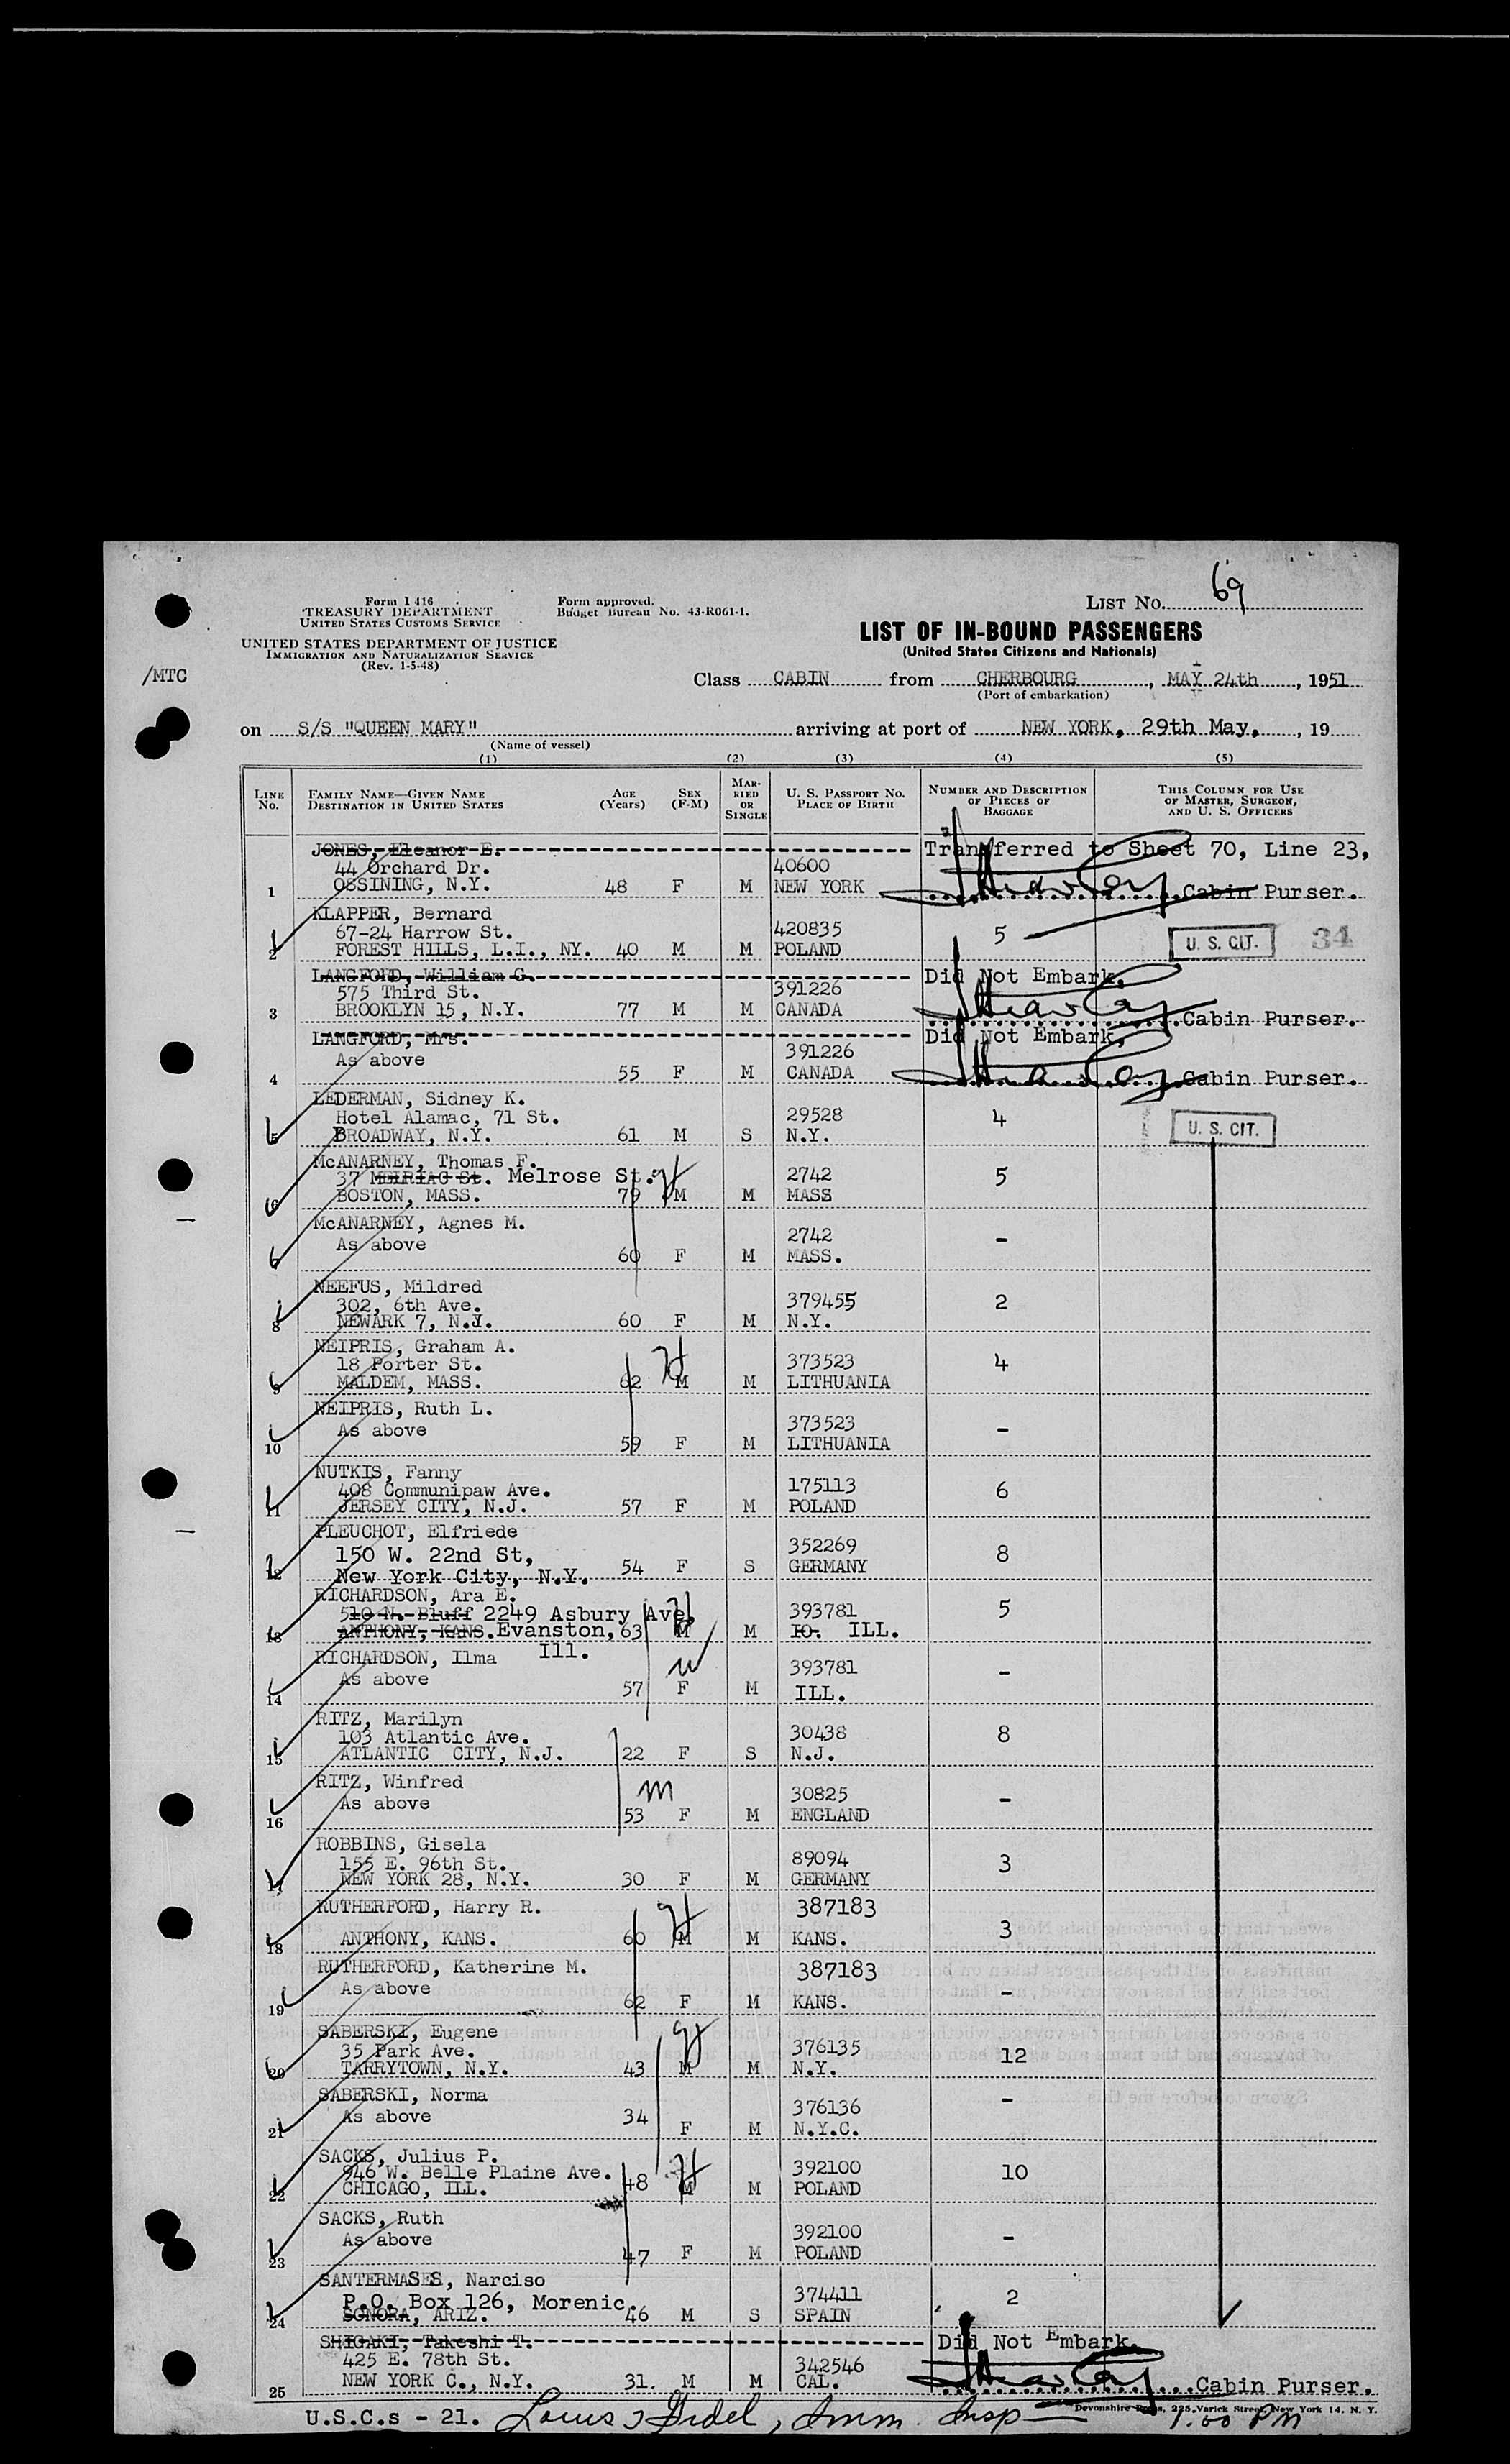 69
Form I 416
TREASURY DEPARTMENT
UNITED STATES CUSTOMS SERVICE
Form approved.
Budget Bureau No. 43-R061-1.
LIST NO.
LIST OF IN-BOUND PASSENGERS
(United States Citizens and Nationals)
UNITED STATES DEPARTMENT OF JUSTICE
IMMIGRATION AND NATURALIZATION SERVICE
(Rev. 1-5-48)
/MTC
Class CABIN from CHERBOURG, MAY 24th, 1951
(Port of embarkation)
on S/S "QUEEN MARY" arriving at port of NEW YORK, 29th May, 19
(Name of vessel)
(1) (2) (3) (4) (5)
LINE NO. FAMILY NAME—GIVEN NAME DESTINATION IN UNITED STATES AGE (Years) SEX (F-M) MARRIED OR SINGLE U. S. PASSPORT NO. PLACE OF BIRTH NUMBER AND DESCRIPTION OF PIECES OF BAGGAGE THIS COLUMN FOR USE OF MASTER, SURGEON, AND U. S. OFFICERS
JONES, Eleanor E. Transferred to Sheet 70, Line 23,
44 Orchard Dr. 40600
1 OSSINING, N.Y. 48 F M NEW YORK Cabin Purser.
KLAPPER, Bernard
67-24 Harrow St. 420835 5
2 FOREST HILLS, L.I., NY. 40 M M POLAND U. S. CIT. 34
LANGFORD, William G. Did Not Embark,
575 Third St. 391226
3 BROOKLYN 15, N.Y. 77 M M CANADA Cabin Purser.
LANGFORD, Mrs. Did Not Embark,
As above 391226
4 55 F M CANADA Cabin Purser.
LEDERMAN, Sidney K.
Hotel Alamac, 71 St. 29528 4
5 BROADWAY, N.Y. 61 M S N.Y. U. S. CIT.
McANARNEY, Thomas F.
37 MEIRIAC St. Melrose St. 2742 5
6 BOSTON, MASS. 79 M M MASS
McANARNEY, Agnes M.
As above 2742 -
7 60 F M MASS.
NEEFUS, Mildred
302, 6th Ave. 379455 2
8 NEWARK 7, N.J. 60 F M N.Y.
NEIPRIS, Graham A.
18 Porter St. 373523 4
9 MALDEM, MASS. 62 M M LITHUANIA
NEIPRIS, Ruth L.
As above 373523 -
10 59 F M LITHUANIA
NUTKIS, Fanny
408 Communipaw Ave. 175113 6
11 JERSEY CITY, N.J. 57 F M POLAND
PLEUCHOT, Elfriede
150 W. 22nd St, 352269 8
12 New York City, N.Y. 54 F S GERMANY
RICHARDSON, Ara E.
510 N. Bluff 2249 Asbury Ave, 393781 5
13 ANTHONY, KANS. Evanston, 63 M M IO. ILL.
Ill.
RICHARDSON, Ilma
As above 393781 -
14 57 F M ILL.
RITZ, Marilyn
103 Atlantic Ave. 30438 8
15 ATLANTIC CITY, N.J. 22 F S N.J.
RITZ, Winfred
As above 30825 -
16 53 F M ENGLAND
ROBBINS, Gisela
155 E. 96th St. 89094 3
17 NEW YORK 28, N.Y. 30 F M GERMANY
RUTHERFORD, Harry R. 387183
18 ANTHONY, KANS. 60 M M KANS. 3
RUTHERFORD, Katherine M. 387183
As above -
19 62 F M KANS.
SABERSKI, Eugene
35 Park Ave. 376135 12
20 TARRYTOWN, N.Y. 43 M M N.Y.
SABERSKI, Norma
As above 34 376136 -
21 F M N.Y.C.
SACKS, Julius P.
946 W. Belle Plaine Ave. 392100 10
22 CHICAGO, ILL. 48 M M POLAND
SACKS, Ruth
As above 392100 -
23 47 F M POLAND
SANTERMASES, Narciso
P.O. Box 126, Morenic. 374411 2
24 SONORA, ARIZ. 46 M S SPAIN
SHIGAKI, Takeshi T. Did Not Embark.
425 E. 78th St. 342546
25 NEW YORK C., N.Y. 31. M M CAL. Cabin Purser.
Devonshire Press, 225 Varick Street, New York 14, N. Y.
U.S.C.s - 21. Louis J Gidel, Imm. Insp 1.00 PM